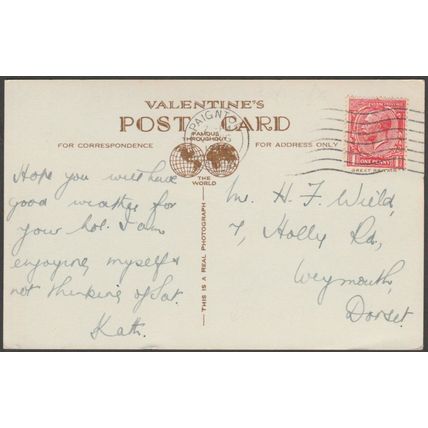 VALENTINE'S
POST CARD
FAMOUS
THROUGHOUT
THE
WORLD
FOR CORRESPONDENCE
FOR ADDRESS ONLY
PAIGNTON
ONE PENNY
GREAT BRITAIN
THIS IS A REAL PHOTOGRAPH
Hope you will have
good weather for
your hol. I am
enjoying myself &
not thinking of Sat.
Kath.
Mr. H. F. Wield,
7, Holly Rd,
Weymouth,
Dorset.